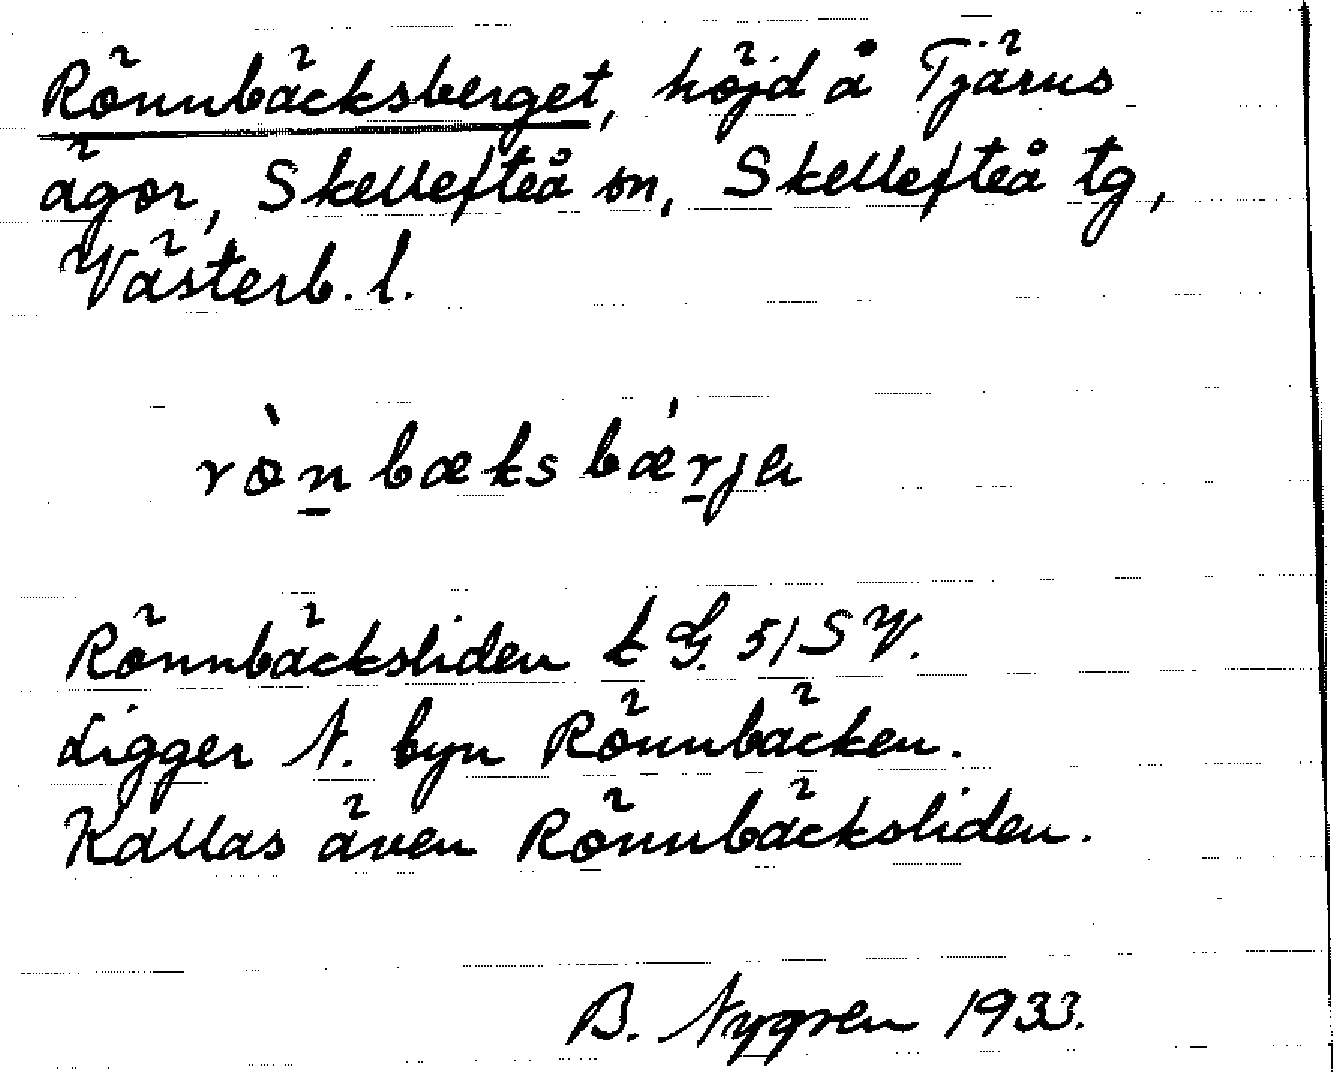 Rönnbäcksberget, höjd å Tjärns
ägor, Skellefteå sn, Skellefteå tg,
Västerb. l.
rön̲bæksbær̲ja
Rönnbäcksliden k G. 51 SV.
Ligger N. byn Rönnbäcken.
Kallas även Rönnbäcksliden.
B. Nygren 1933.